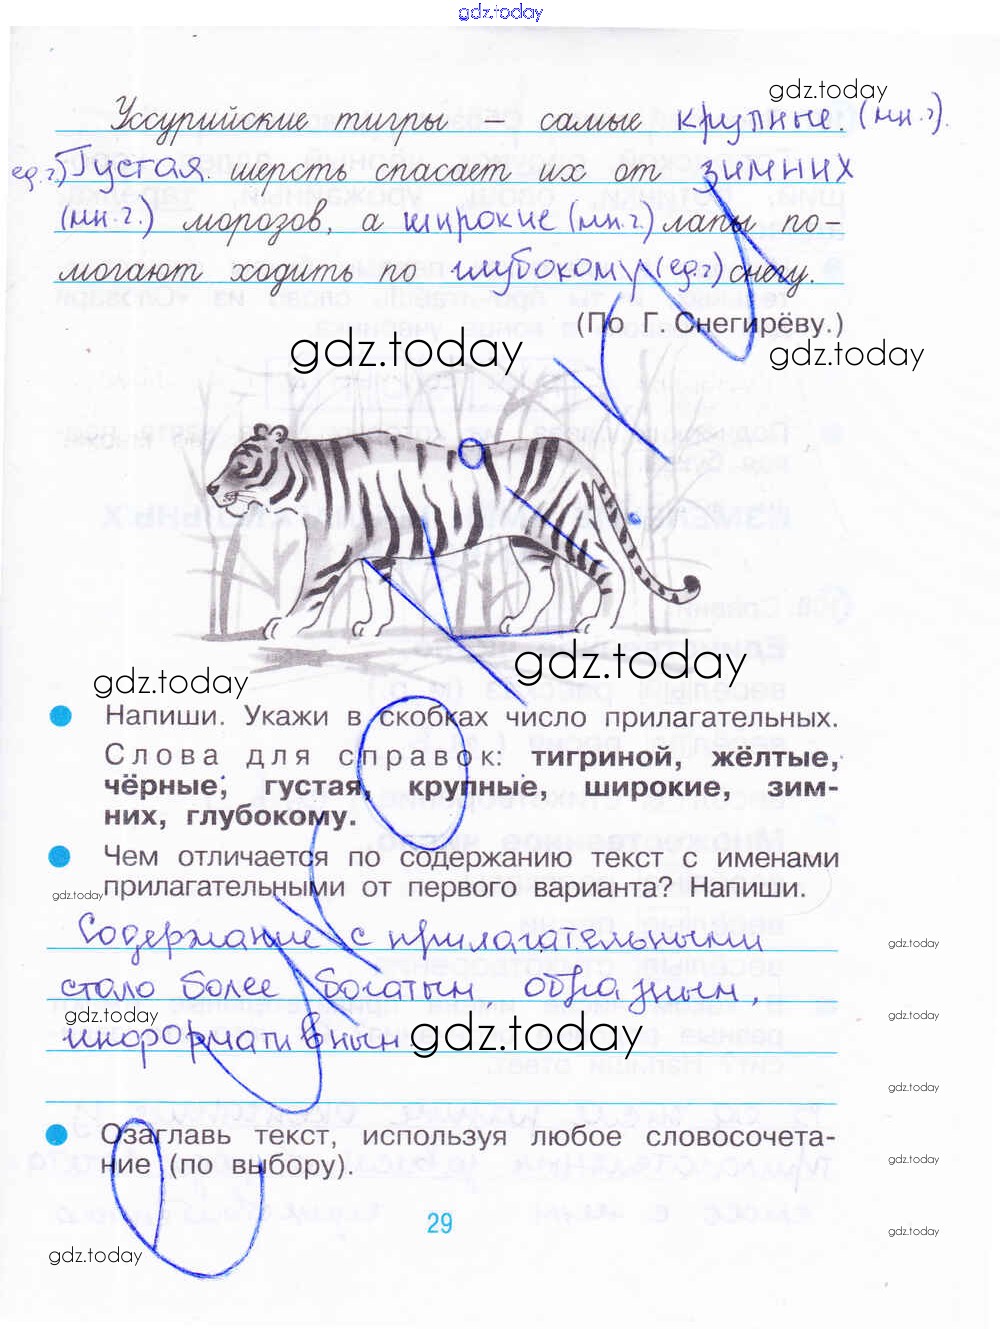 gdz.today
gdz.today
Уссурийские тигры – самые крупные. (мн.ч).
ед.ч.) Густая. шерсть спасает их от зимних
(мн.ч.) морозов, а широкие (мн.ч.) лапы по-
могают ходить по глубокому (ед.ч) снегу.
(По Г. Снегирёву.)
gdz.today
gdz.today
gdz.today
gdz.today
Напиши. Укажи в скобках число прилагательных.
Слова для справок: тигриной, жёлтые,
чёрные, густая, крупные, широкие, зим-
них, глубокому.
Чем отличается по содержанию текст с именами
прилагательными от первого варианта? Напиши.
gdz.today
Содержание с прилагательными
gdz.today
стало более богатым образным,
gdz.today
gdz.today
информативным
gdz.today
gdz.today
Озаглавь текст, используя любое словосочета-
ние (по выбору).
gdz.today
29
gdz.today
gdz.today